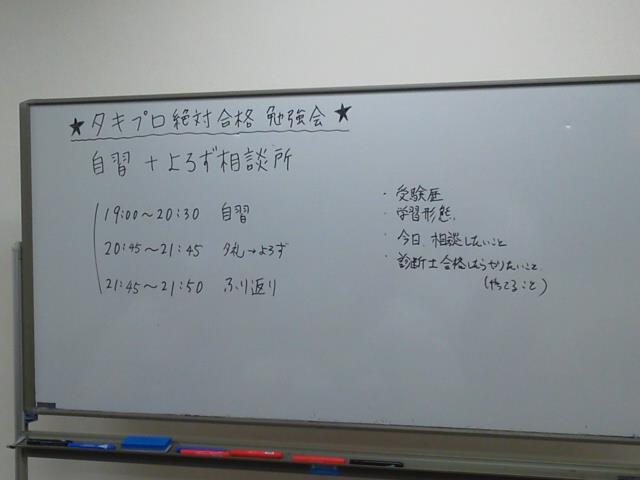 ★タキプロ絶対合格勉強会★
自習+よろず相談所
19:00～20:30 自習
20:45～21:45 夕礼→よろず
21:45～21:50 ふり返り
・受験歴
・学習形態.
・今日、相談したいこと
・診断士合格したらやりたいこと
(やってること)